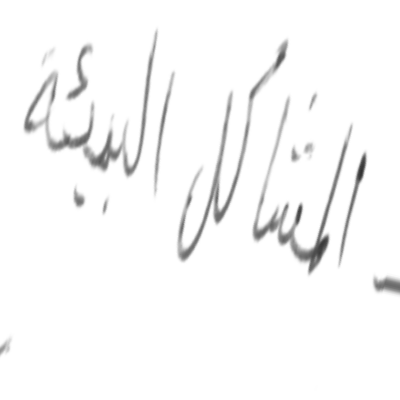 - المشاكل البيئة